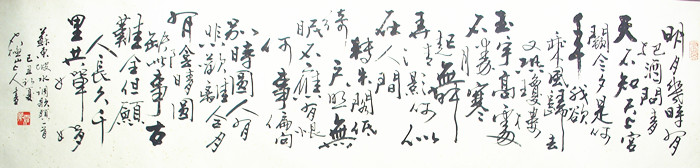 明月幾時有
把酒問青
天不知天上宮
闕今夕是何
年我欲
乘風歸去
又恐瓊樓
玉宇高處
不勝寒
起舞
弄清影何似
在人間
轉朱閣低
綺戶照無
眠不應有恨
何事偏向
別時圓人有
悲歡離合
月有陰晴圓
缺此事古
難全但願
人長久千
里共嬋
蘇東坡水調歌頭一首
山人書